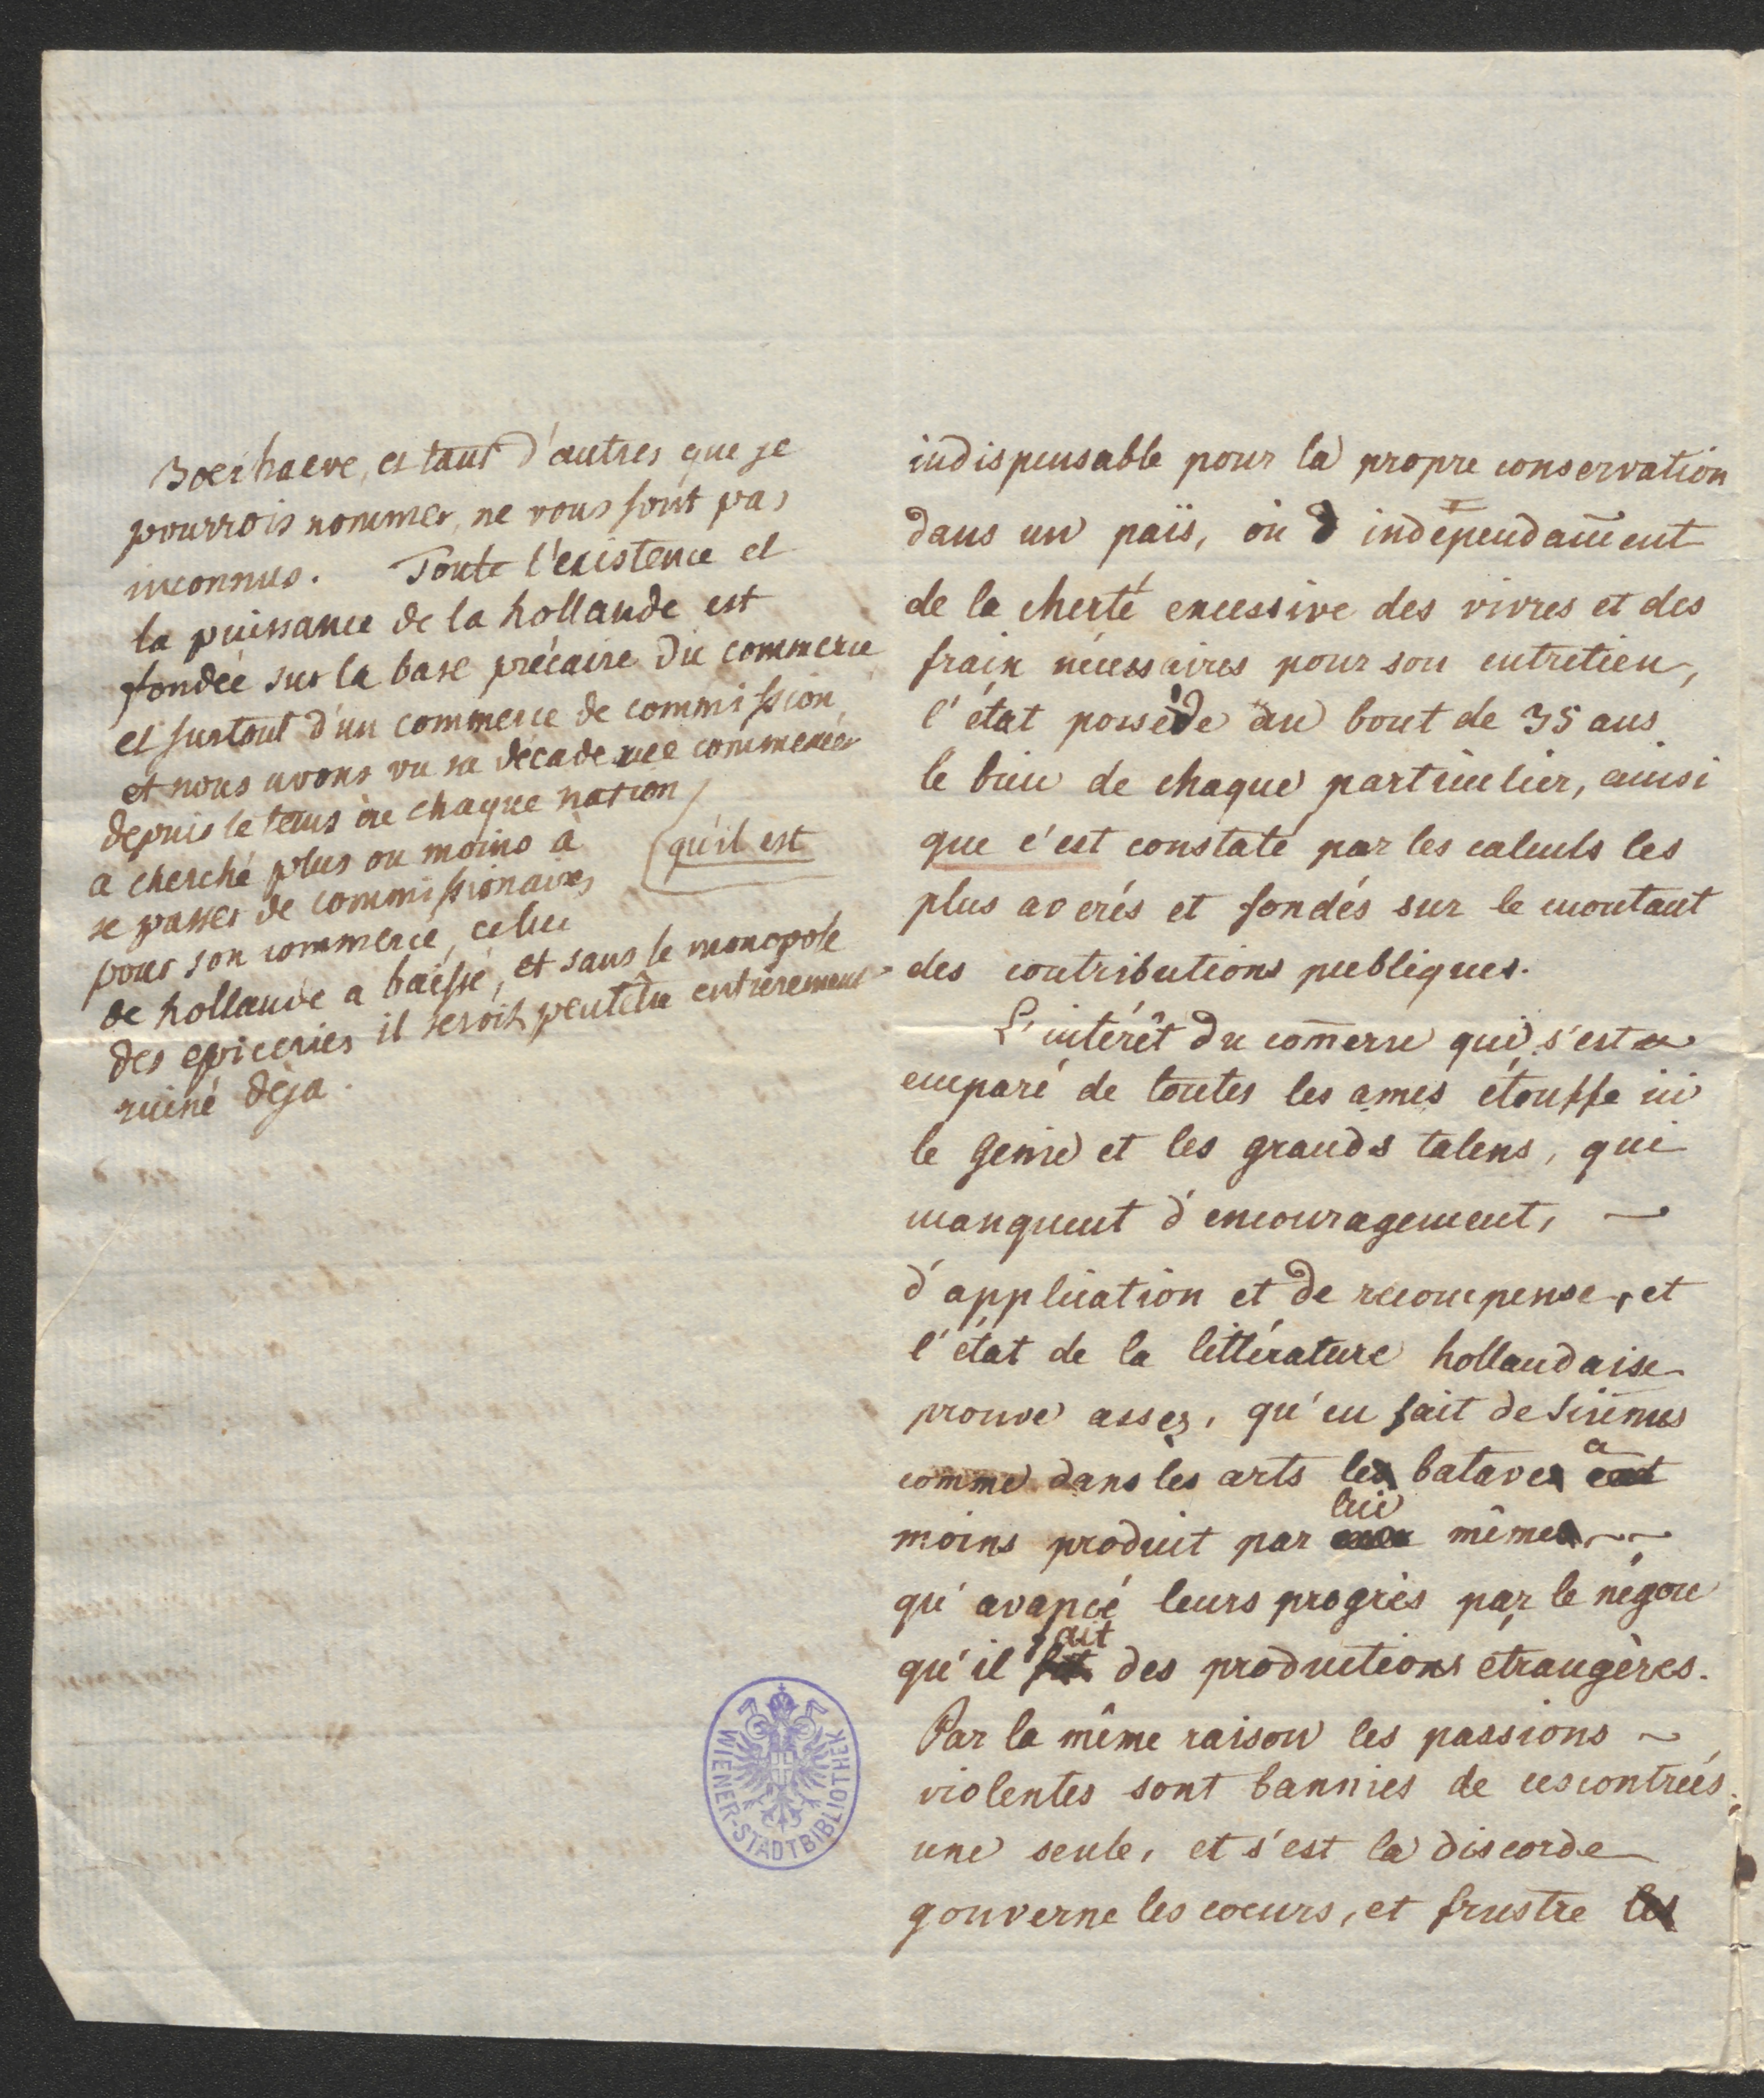 Boerhaeve, et tant d'autres que je
pourrois nommer, ne vous sont pas
inconnus. Toute l'existence et
la puissance de la hollande est
fondée sur la base précaire du commerce
et surtout d'un commerce de commission,
et nous avons vu sa décadence commencer
depuis le tems où chaque nation
a cherché plus ou moins à
se passer de commissionaires
(qu'il est
pour son commerce, celui
de hollande a baissé, et sans le monopole
des epiceries il seroit peutêtre entièrement
ruiné déja.
indispensable pour la propre conservation
dans un païs, où indépendam̄ent
de la cherté excessive des vivres et des
fraix nécessaires pour son entretien,
l'état possède au bout de 35 ans
le bien de chaque particulier, ainsi
que c'est constaté par les calculs les
plus averés et fondés sur le montant
des contributions publiques.
L'intérêt du com̄erce qui s'est
emparé de toutes les ames étouffe ici
le genie et les grands talens, qui
manquent d'encouragement,
d'application et de recompense, et
l'état de la littérature hollandaise
prouve assez, qu'en fait de siences
comme dans les arts le batave a
moins produit par lui même
qu'avancé leurs progrès par le négoce
qu'il fait des productions etrangères.
Par la même raison les passions
violentes sont bannies de ces contrées.
une seule, et s'est la discorde
gouverne les coeurs, et frustre les
WIENER-STADTBIBLIOTHEK